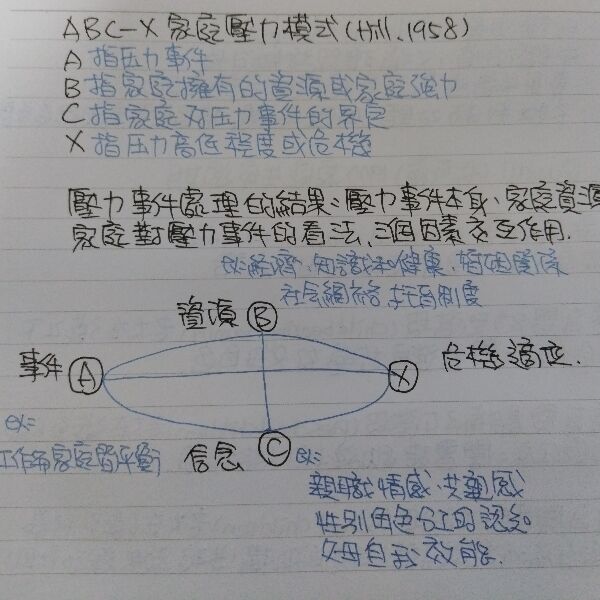 ABC-X 家庭壓力模式(Hill, 1958)
A 指压力事件
B 指家庭擁有的資源或家庭強力
C 指家庭对压力事件的界定
X 指压力高低程度或危機
壓力事件處理的結果:壓力事件本身、家庭資源
家庭對壓力事件的看法,3個因素交互作用.
ex:經濟,知識和健康,婚姻關係
社会網絡,托育制度
資源 B
事件 A
X 危機適应.
ex:
工作和家庭 平衡
信念 C ex:
親職情感,共親感
性别角色分工的認知
父母自我效能.